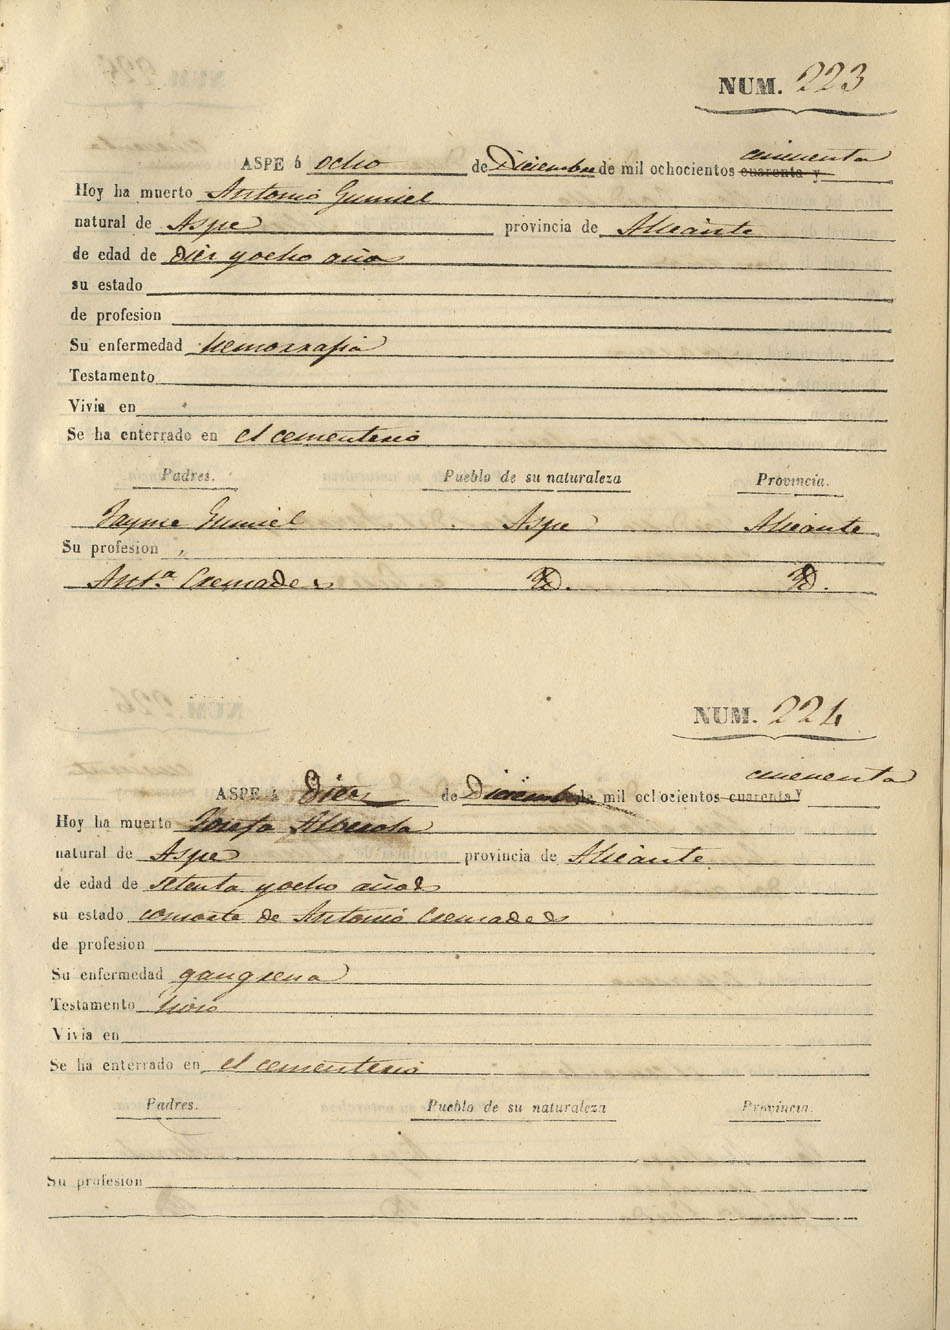 NUM. 223
cincuenta
ASPE á ocho de Diciembre de mil ochocientos cuarenta y
Hoy ha muerto Antonio Gumiel
natural de Aspe provincia de Alicante
de edad de diez y ocho años
su estado
de profesion
Su enfermedad hemorrafia
Testamento
Vivia en
Se ha enterrado en el cementerio
Padres. Pueblo de su naturaleza Provincia.
Jayme Gumiel Aspe Alicante
Su profesion
Ant.ª Cremades Yd. Yd.
NUM. 224
cincuenta
ASPE á Diez de Diciembre de mil ochocientos cuarenta y
Hoy ha muerto Josefa Alberola
natural de Aspe provincia de Alicante
de edad de setenta y ocho años
su estado consorte de Antonio Cremades
de profesion
Su enfermedad gangrena
Testamento hizo
Vivia en
Se ha enterrado en el cementerio
Padres. Pueblo de su naturaleza Provincia.
Su profesion